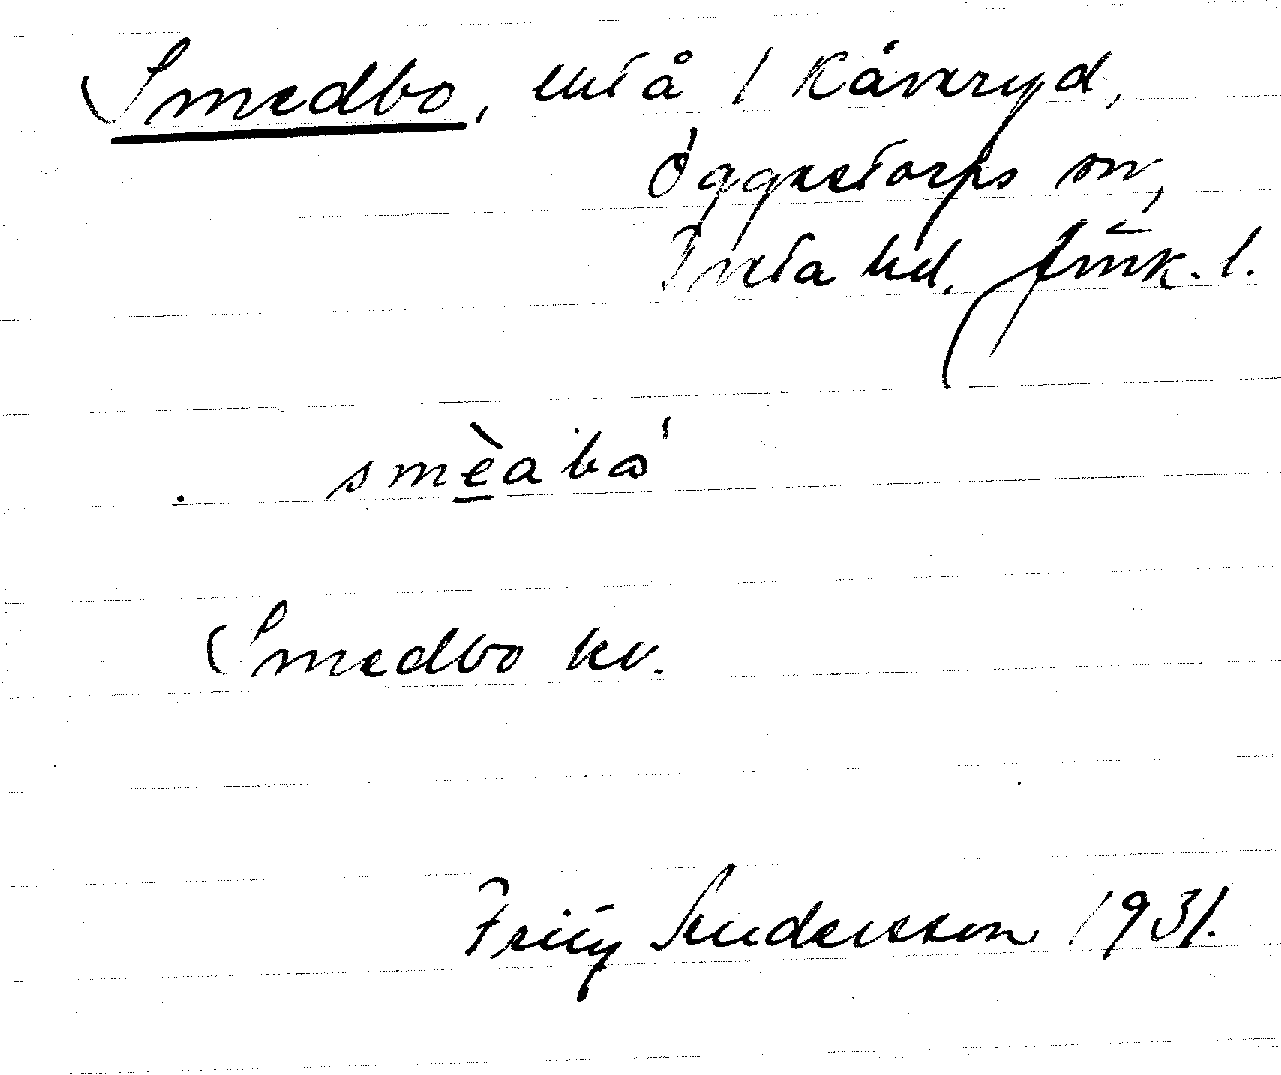 Smedbo, utfå / Kåveryd,
Öggestorps sn,
Tveta hd. Jönk. l.
smèabo'
Smedbo kv.
Fritz Andersson 1931.